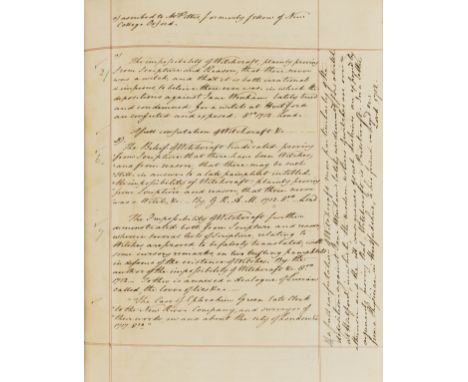 ascribed to Mr Pettes formerly fellow of New
College Oxford.
The impossibility of Witchcraft, plainly proving
from Scripture and Reason, that there never
was a witch and that it is both irrational
& impious to believe there ever was, in which the
depositions against Jane Wenham lately tried
and condemned for a witch at Hertford
are confuted and exposed. 8vo 1712. Lond.
A full confutation of Witchcraft &c
The Belief of Witchcraft Vindicated: proving
from Scripture that there have been Witches,
and from reason, that there may be such
still. in answer to a late pamphlet intitled
The impossibility of Witchcraft: plainly proving
from Scripture and reason that there never
was a Witch, &c. By G. R. A. M. 1712. 8vo. Lond
The Impossibility of Witchcraft further
demonstrated both from Scripture and reason
wherein several texts of Scripture, relating to
Witches are proved to be falsely translated, with
some cursory remarks on two trifling pamphlets
in defence of the existence of Witches. By the
author of the impossibility of Witchcraft &c. 8vo
1712 — To this is annexed a dialogue of Lucian
called the lover of lies &c —
"The Case of Ephraim Green late Clerk
to the New River Company, and surveyor of
their works in and about the city of London &c
1717. 8vo"
The full confutation of Witchcraft: more particularly of the
depositions against Jane Wenham lately condemned for a witch
at Hertford, in which the modern notions of witches are overthrown
and the ill consequences of such doctrines are exposed by
arguments; proving that Witchcraft is Priestcraft. In a letter
from a Physician in Hertfordshire, to his friend in London.
Lond. 1712.